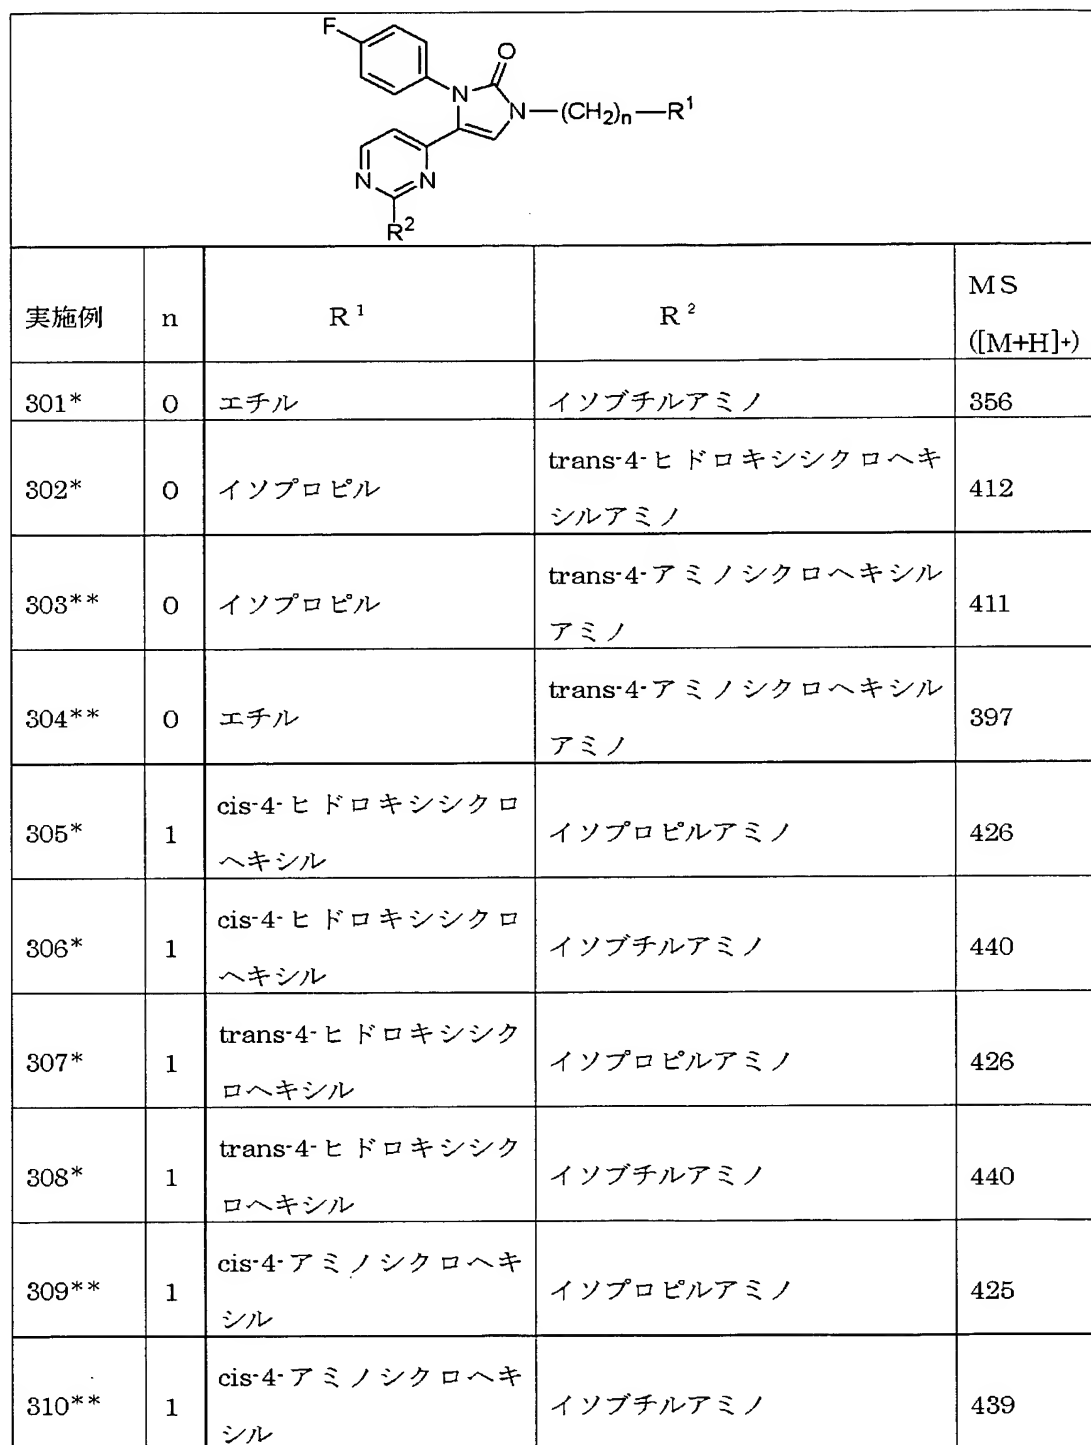 F
O
N
N—(CH2)n—R¹
N
N
R²
実施例 n R¹ R² MS ([M+H]+)
301* 0 エチル イソブチルアミノ 356
302* 0 イソプロピル trans-4-ヒドロキシシクロヘキ
シルアミノ 412
303** 0 イソプロピル trans-4-アミノシクロヘキシル
アミノ 411
304** 0 エチル trans-4-アミノシクロヘキシル
アミノ 397
305* 1 cis-4-ヒドロキシシクロ
ヘキシル イソプロピルアミノ 426
306* 1 cis-4-ヒドロキシシクロ
ヘキシル イソブチルアミノ 440
307* 1 trans-4-ヒドロキシシク
ロヘキシル イソプロピルアミノ 426
308* 1 trans-4-ヒドロキシシク
ロヘキシル イソブチルアミノ 440
309** 1 cis-4-アミノシクロヘキ
シル イソプロピルアミノ 425
310** 1 cis-4-アミノシクロヘキ
シル イソブチルアミノ 439